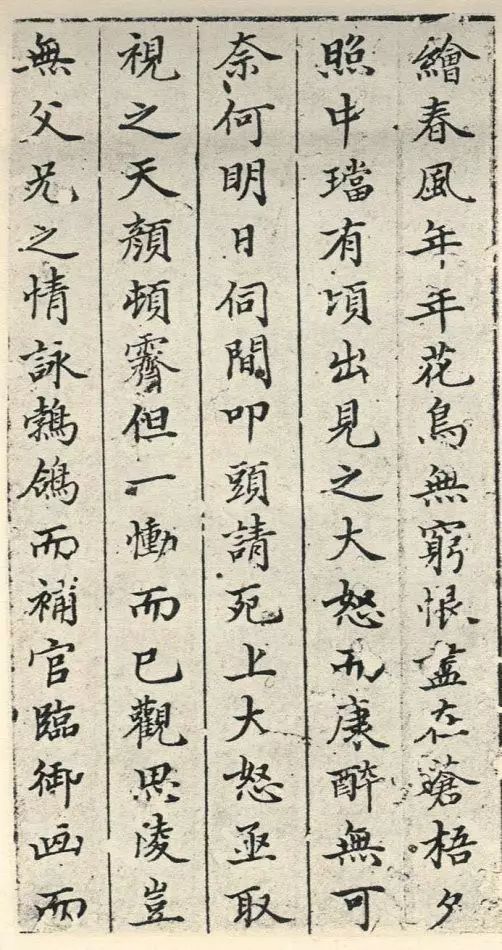 繪春風年年花鳥無窮恨盡在蒼梧夕
照中璫有頃出見之大怒而康醉無可
奈何明日伺間叩頭請死上大怒亟取
視之天顔頓霽但一慟而已觀思陵豈
無父兄之情詠鶺鴒而補官臨御画而